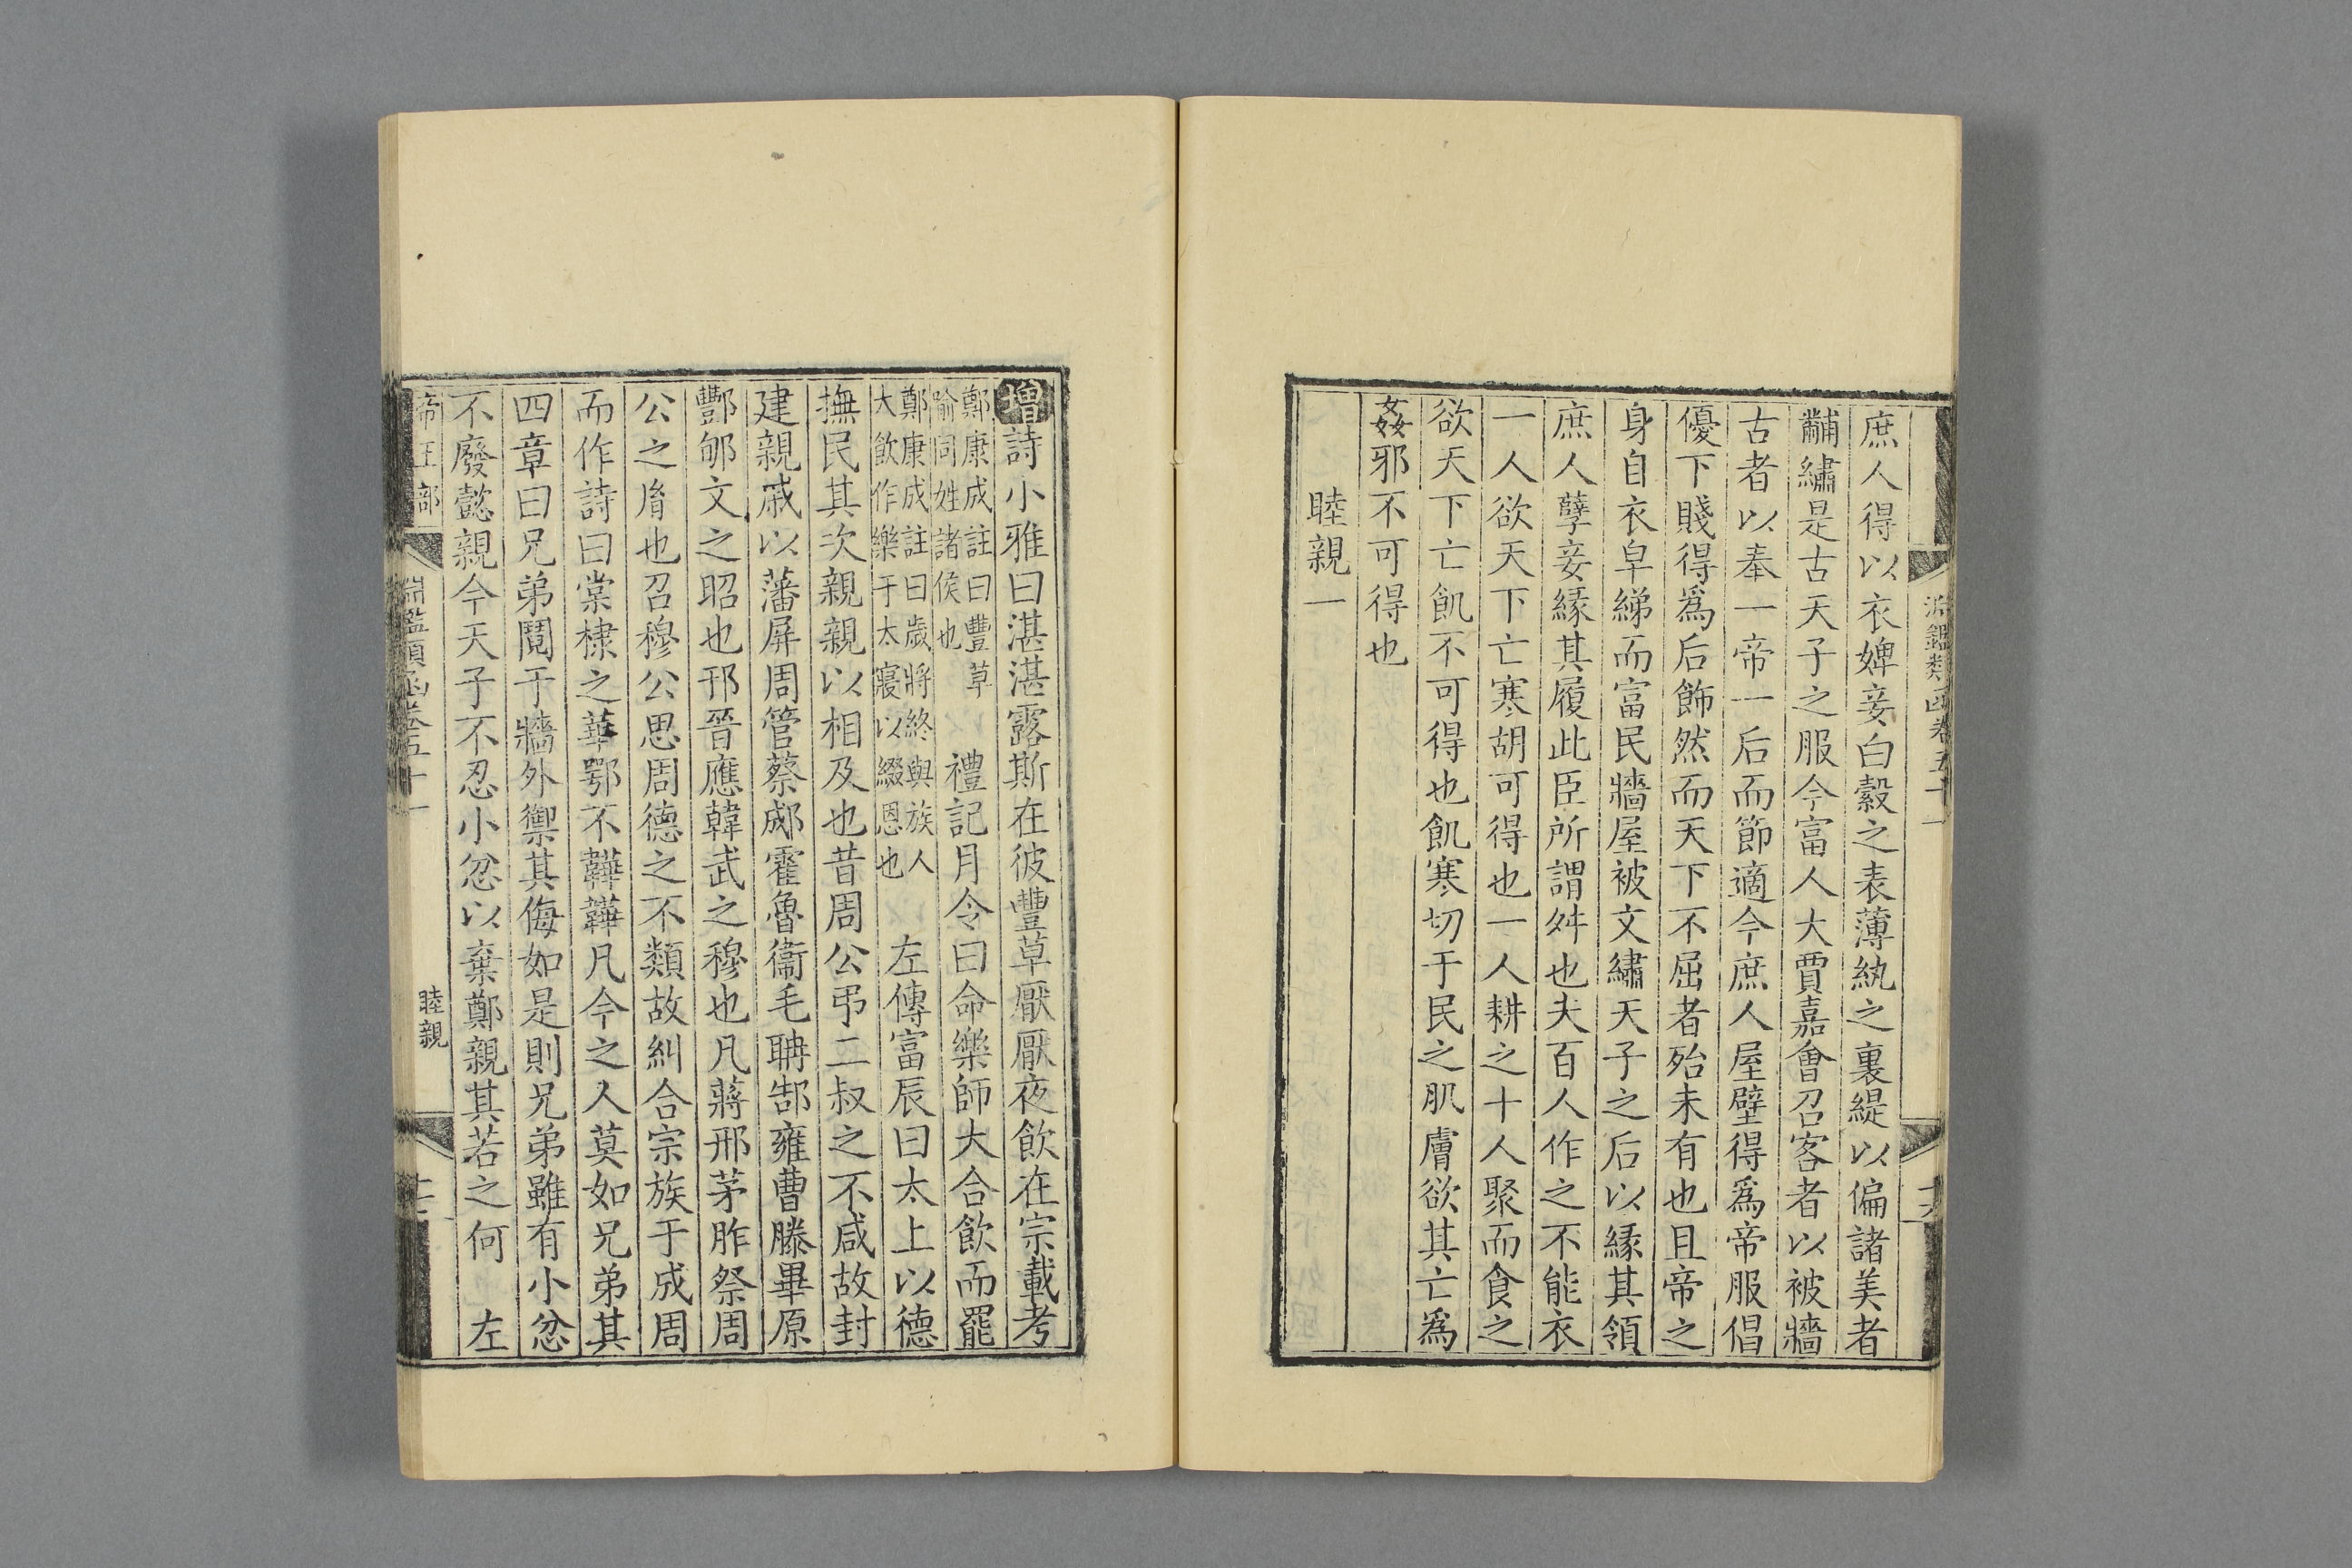 庶人得以衣婢妾白縠之表薄紈之裏緹以偏諸美者
黼繡是古天子之服今富人大賈嘉會召客者以被牆
古者以奉一帝一后而節適今庶人屋壁得爲帝服倡
優下賤得爲后飾然而天下不屈者殆未有也且帝之
身自衣皁綈而富民牆屋被文繡天子之后以緣其領
庶人孽妾緣其履此臣所謂舛也夫百人作之不能衣
一人欲天下亡寒胡可得也一人耕之十人聚而食之
欲天下亡飢不可得也飢寒切于民之肌膚欲其亡爲
姦邪不可得也
睦親一
增詩小雅曰湛湛露斯在彼豐草厭厭夜飲在宗載考
鄭康成註曰豐草
喻同姓諸侯也
禮記月令曰命樂師大合飲而罷
鄭康成註曰歲將終與族人
大飲作樂于太寢以綴恩也
左傳富辰曰太上以德
撫民其次親親以相及也昔周公弔二叔之不咸故封
建親戚以藩屏周管蔡郕霍魯衞毛聃郜雍曹滕畢原
酆郇文之昭也邘晉應韓武之穆也凡蔣邢茅胙祭周
公之胤也召穆公思周德之不類故糾合宗族于成周
而作詩曰棠棣之華鄂不韡韡凡今之人莫如兄弟其
四章曰兄弟鬩于牆外禦其侮如是則兄弟雖有小忿
不廢懿親今天子不忍小忿以棄鄭親其若之何 左
帝王部 淵鑑類函卷五十一 睦親